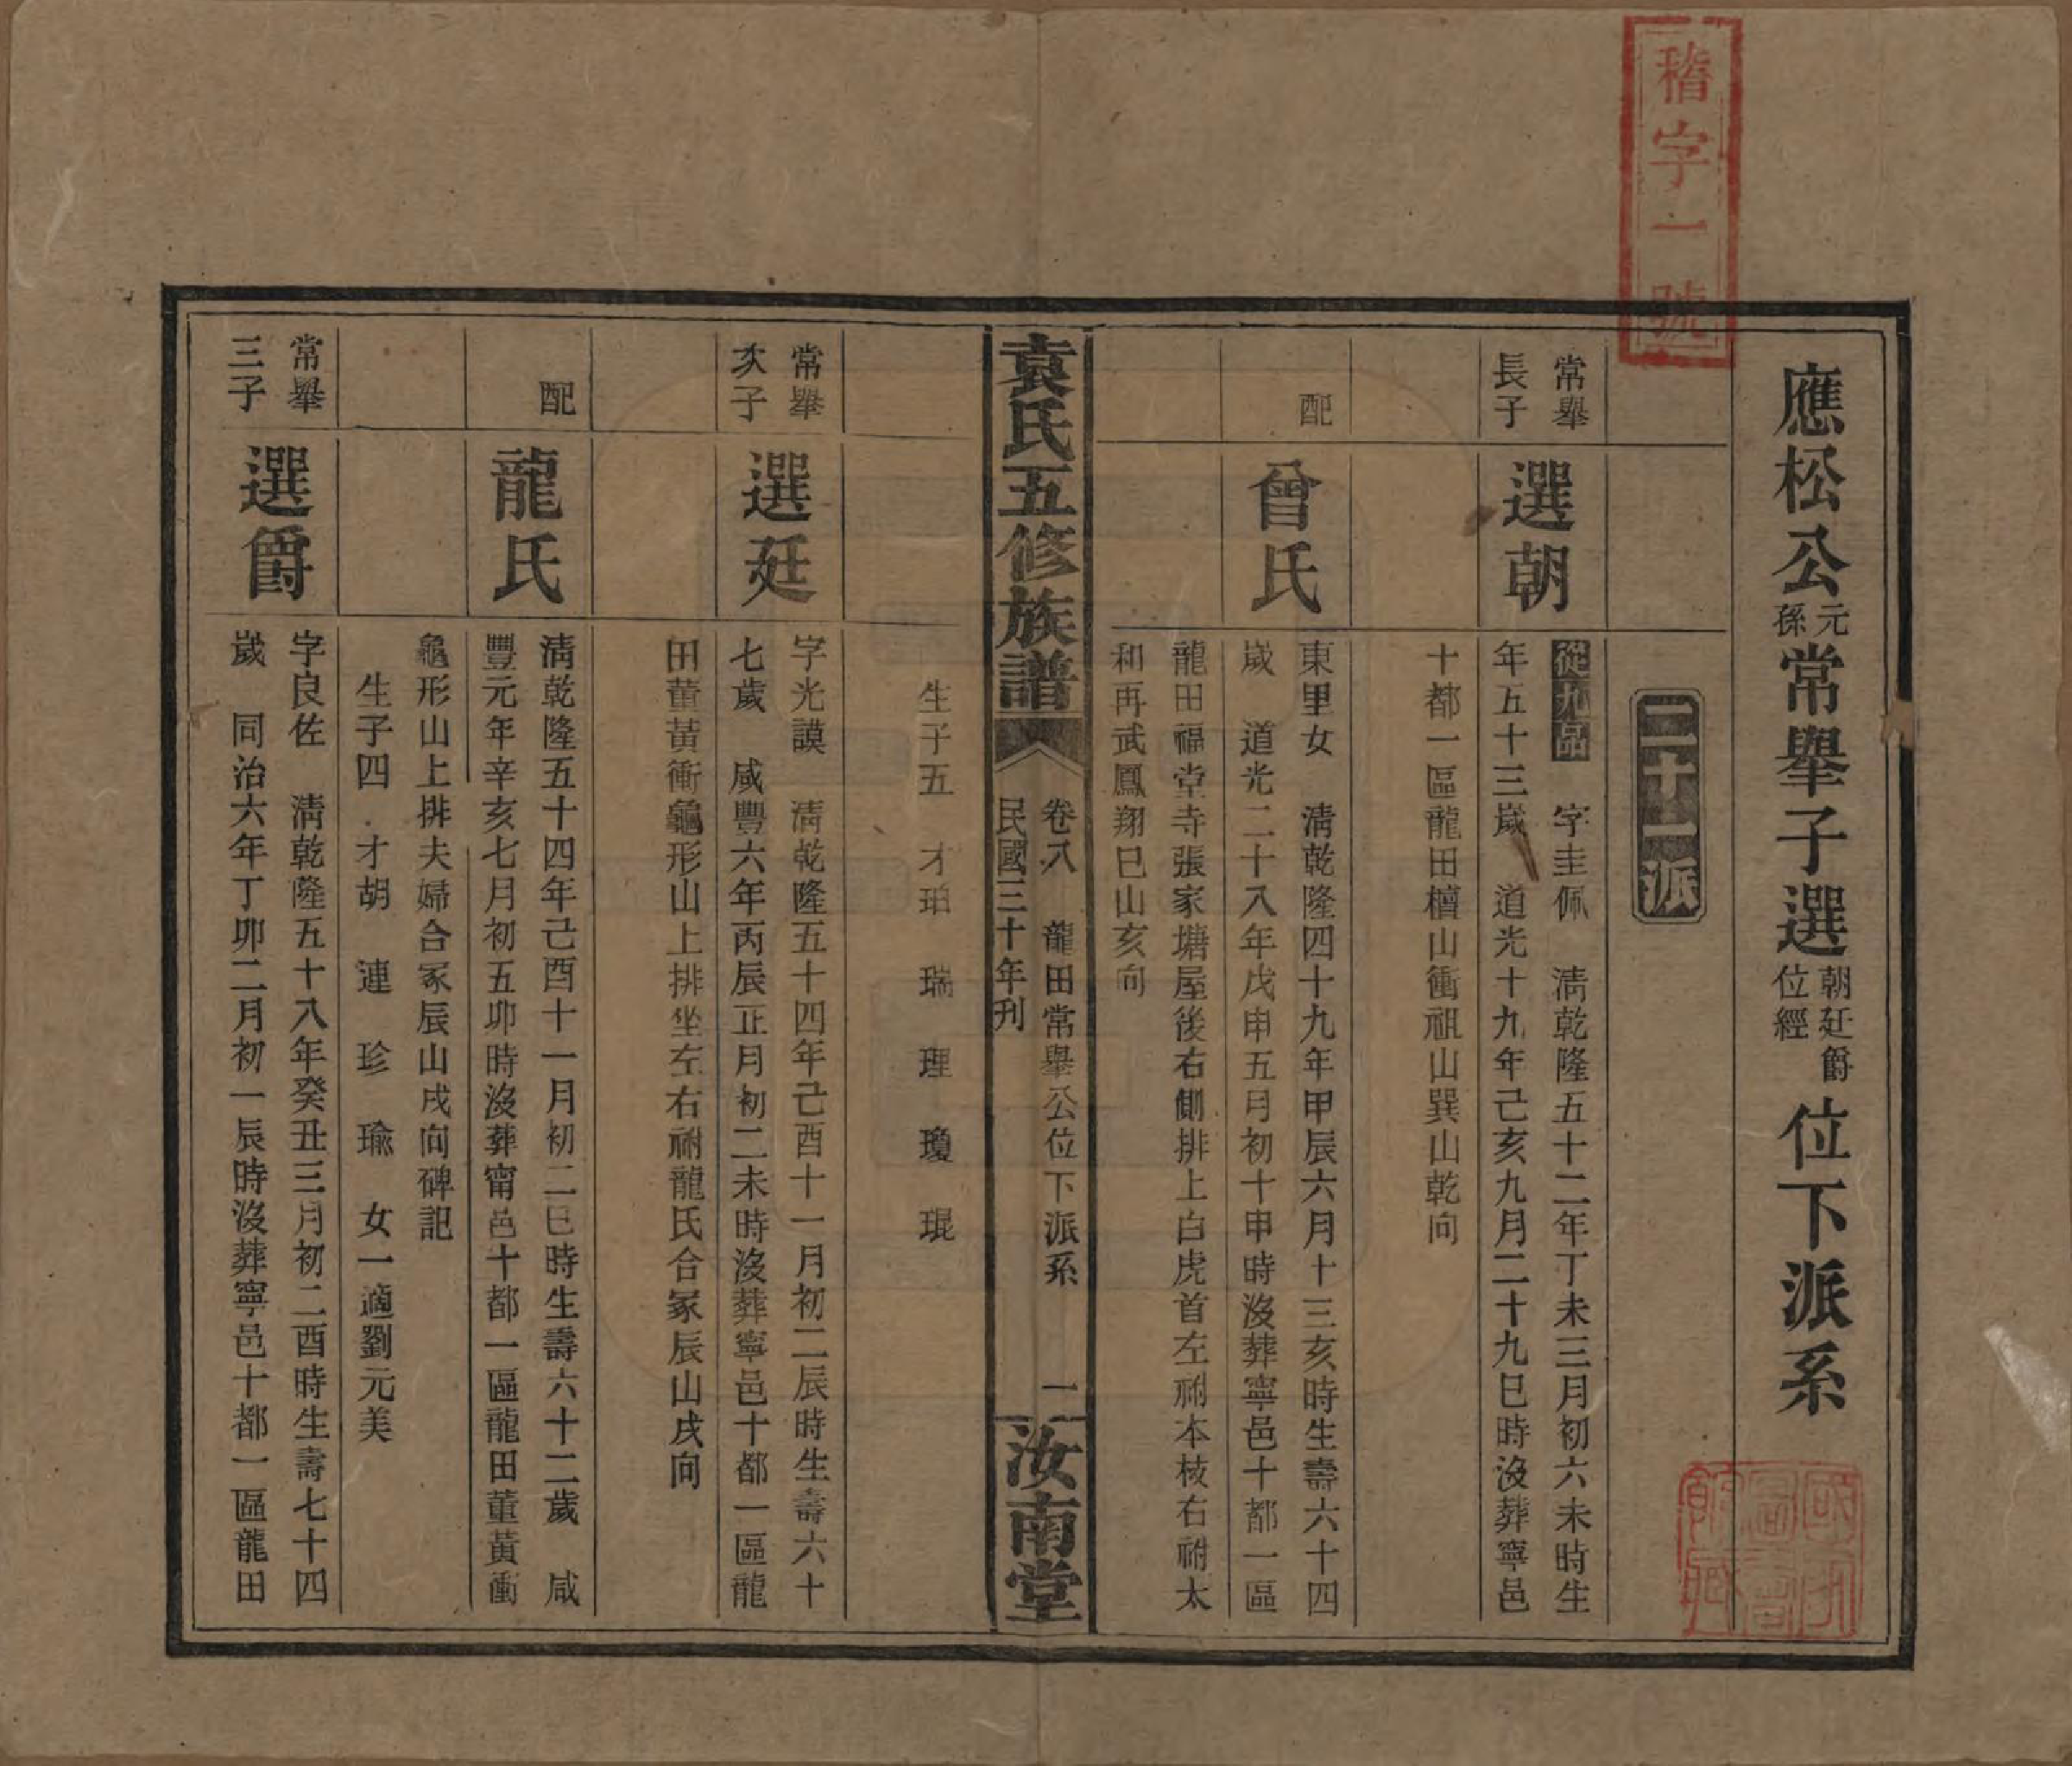 稽字一號
應松公元孫常舉子選朝廷爵位經位下派系
二十一派
常舉
長子
選朝
從九品 字圭佩 淸乾隆五十二年丁未三月初六未時生
年五十三歲 道光十九年己亥九月二十九巳時沒葬寧邑
十都一區龍田檀山衝祖山巽山乾向
配
曾氏
東里女 淸乾隆四十九年甲辰六月十三亥時生壽六十四
歲 道光二十八年戊申五月初十申時沒葬寧邑十都一區
龍田福堂寺張家塘屋後右側排上白虎首左祔本枝右祔太
和再武鳳翔巳山亥向
袁氏五修族譜
卷八 龍田常舉公位下派系 一
民國三十年刊
汝南堂
生子五 才珀 瑞 理 瓊 琨
常舉
次子
選廷
字光謨 淸乾隆五十四年己酉十一月初二辰時生壽六十
七歲 咸豐六年丙辰正月初二未時沒葬寧邑十都一區龍
田董黃衝龜形山上排坐左右祔龍氏合冢辰山戌向
配
龍氏
淸乾隆五十四年己酉十一月初二巳時生壽六十二歲 咸
豐元年辛亥七月初五卯時沒葬甯邑十都一區龍田董黃衝
龜形山上排夫婦合冢辰山戌向碑記
生子四 才胡 連 珍 瑜 女一適劉元美
常舉
三子
選爵
字良佐 淸乾隆五十八年癸丑三月初二酉時生壽七十四
歲 同治六年丁卯二月初一辰時沒葬寧邑十都一區龍田